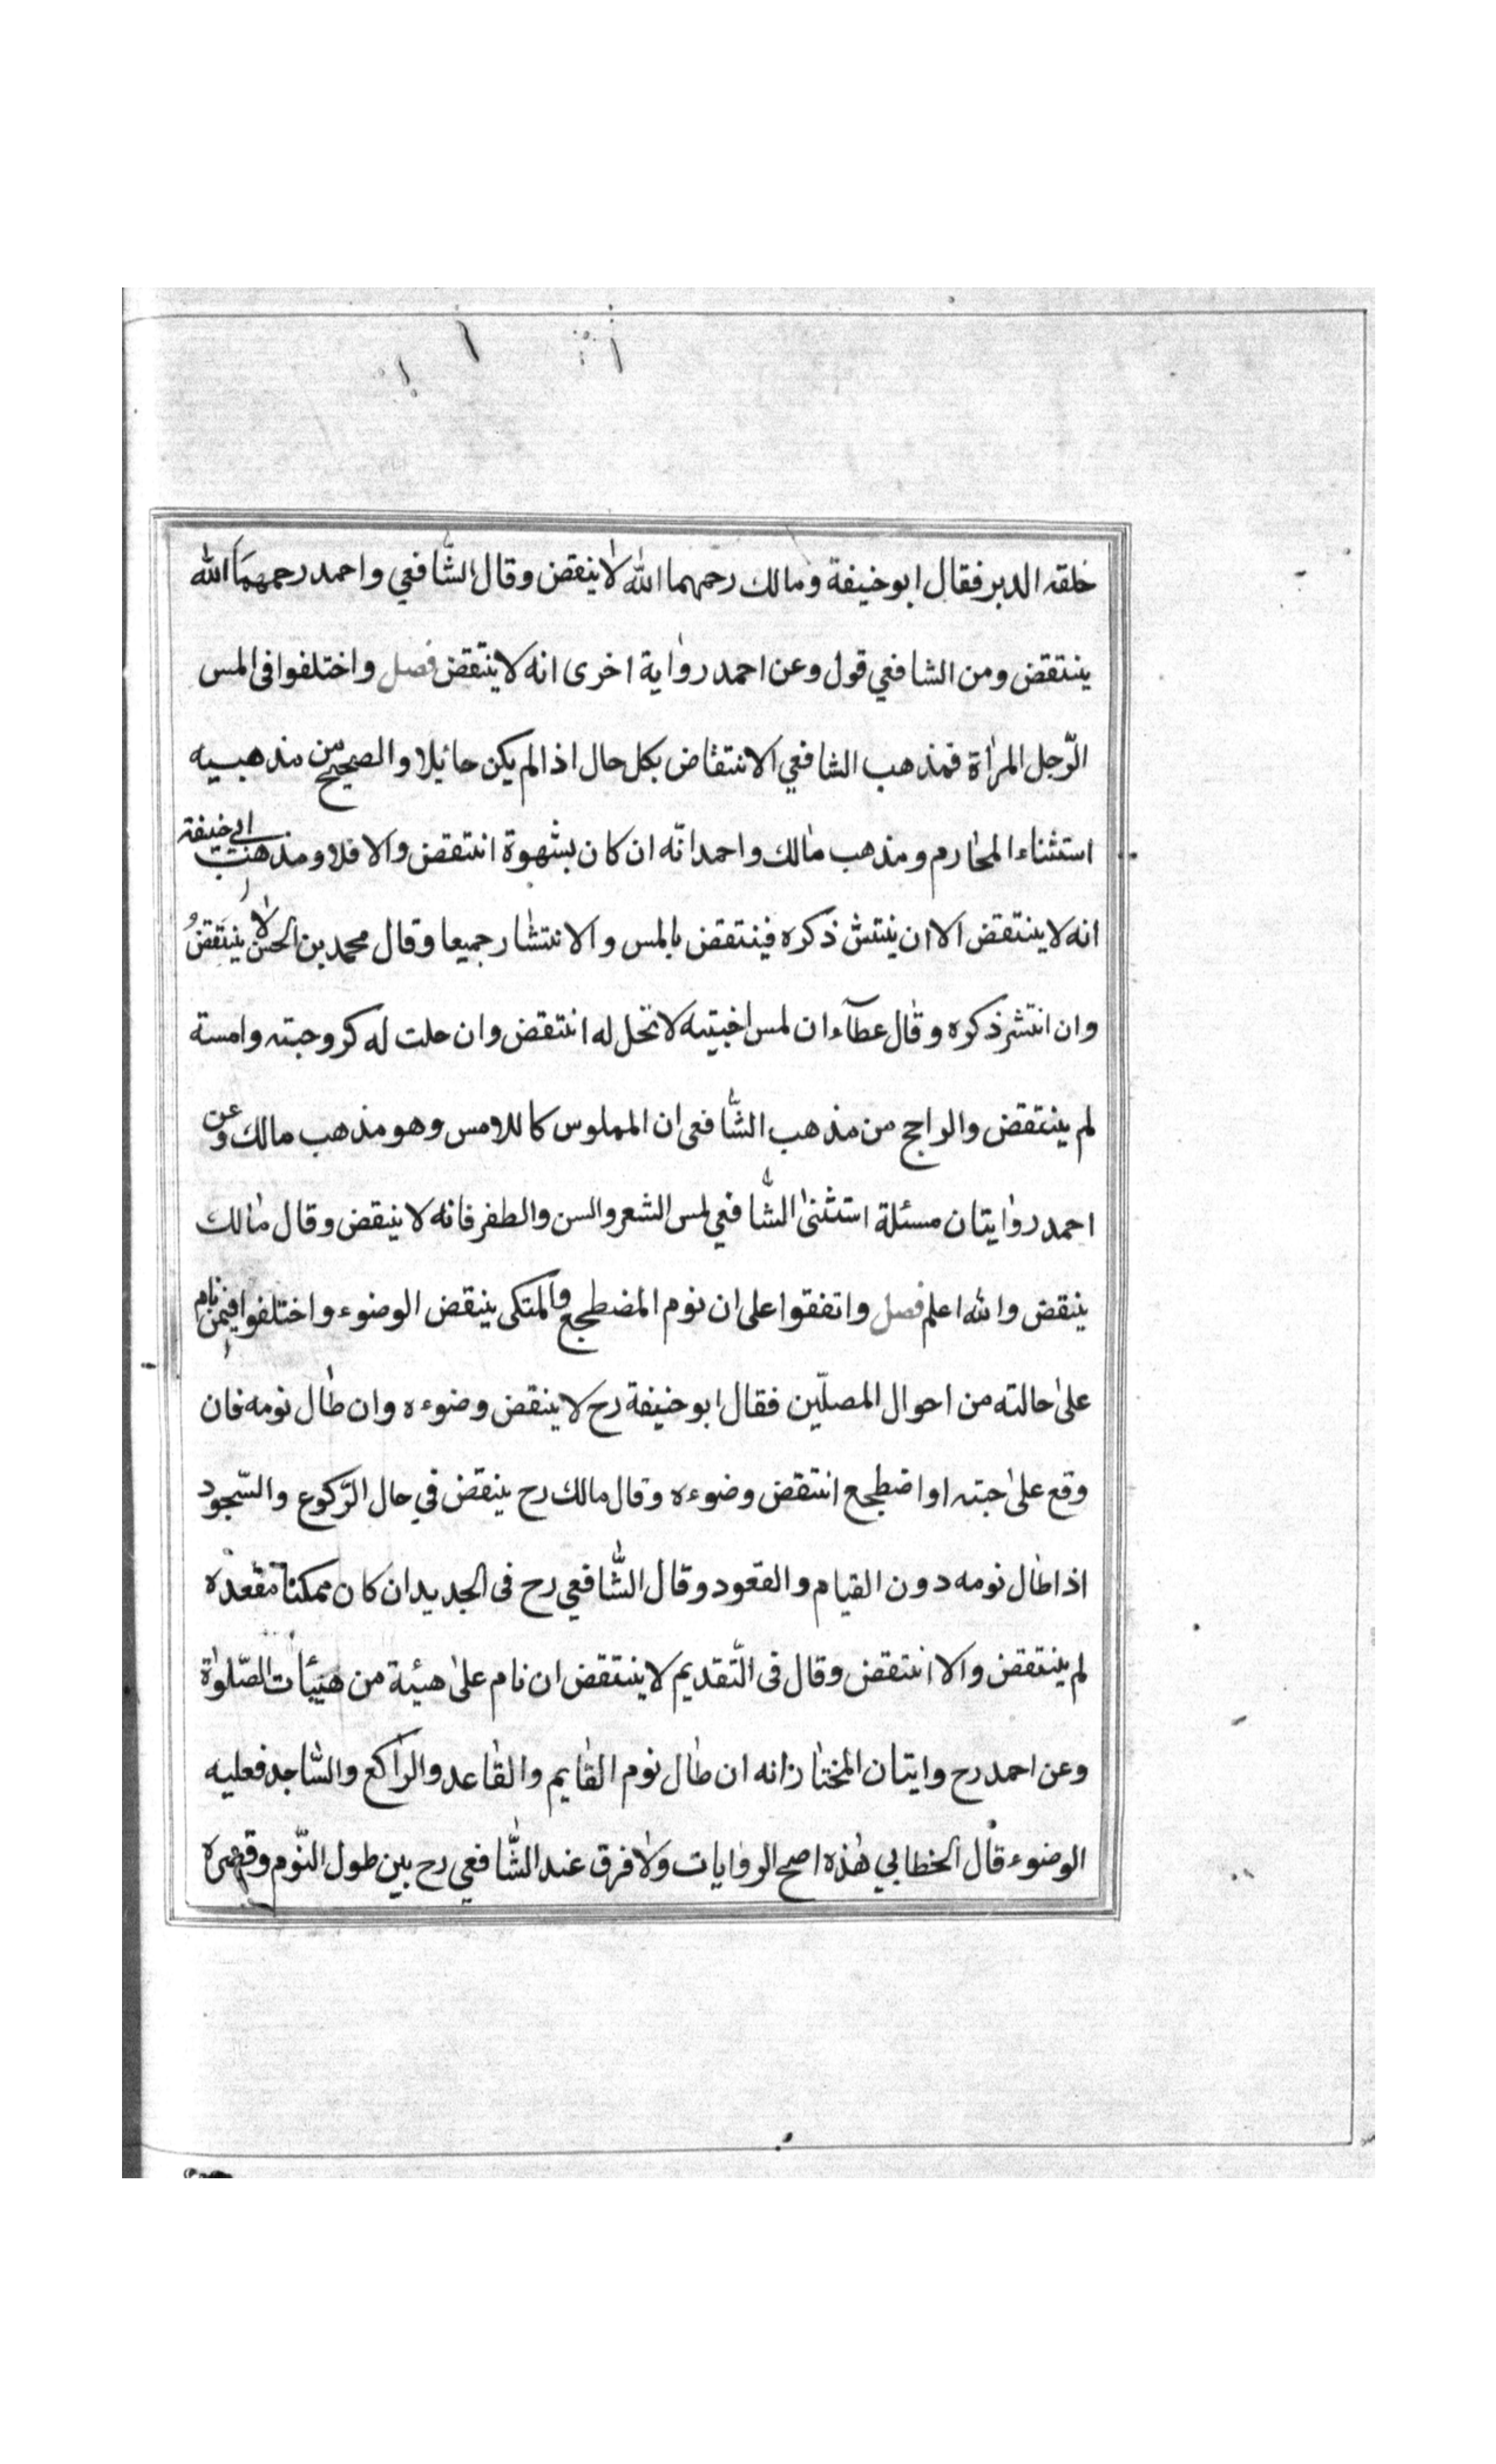 خلقه الدبر فقال ابو حنيفة ومالك رحمهما الله لا ينقض وقال الشافعي واحمد رحمهما الله
ينتقض ومن الشافعي قول وعن احمد رواية اخرى انه لا ينتقض فصل واختلفوا فى المس
الرّجل المرأة فمذهب الشافعي الانتقاض بكل حال اذا لم يكن حائلا والصحيح من مذهبيه
استثناء المحارم ومذهب مالك واحمد انّه ان كان بشهوة انتقض والا فلا ومذهب ابي حنيفة
انه لا ينتقض الا ان ينتش ذكره فينتقض بالمس والانتشار جميعا وقال محمد بن الحسن لا ينتقض
وان انتشر ذكره وقال عطآء ان لمس اجنبيه لا تحل له انتقض وان حلت له كزوجته وامسته
لم ينتقض والراجح من مذهب الشّافعى ان المملوس كاللامس وهو مذهب مالك وعن
احمد روايتان مسئلة استثنى الشّافعي لمس الشعر والسن والظفر فانه لا ينقض وقال مالك
ينقض والله اعلم فصل واتفقوا على ان نوم المضطجع والمتكى ينقض الوضوء واختلفوا فيمن نام
على حالته من احوال المصلّين فقال ابو حنيفة رح لا ينقض وضوءه وان طال نومه فان
وقع على جنبه او اضطجع انتقض وضوءه وقال مالك رح ينقض في حال الرّكوع والسّجود
اذا طال نومه دون القيام والقعود وقال الشّافعي رح فى الجديد ان كان ممكنا مقعده
لم ينتقض والا انتقض وقال فى التّقديم لا ينتقض ان نام على هيئة من هيئات الصّلوة
وعن احمد رح وايتان المختار انه ان طال نوم القايم والقاعد والراكع والسّاجد فعليه
الوضوء قال الخطابي هذه اصح الروايات ولا فرق عند الشّافعي رح بين طول النّوم وقصره